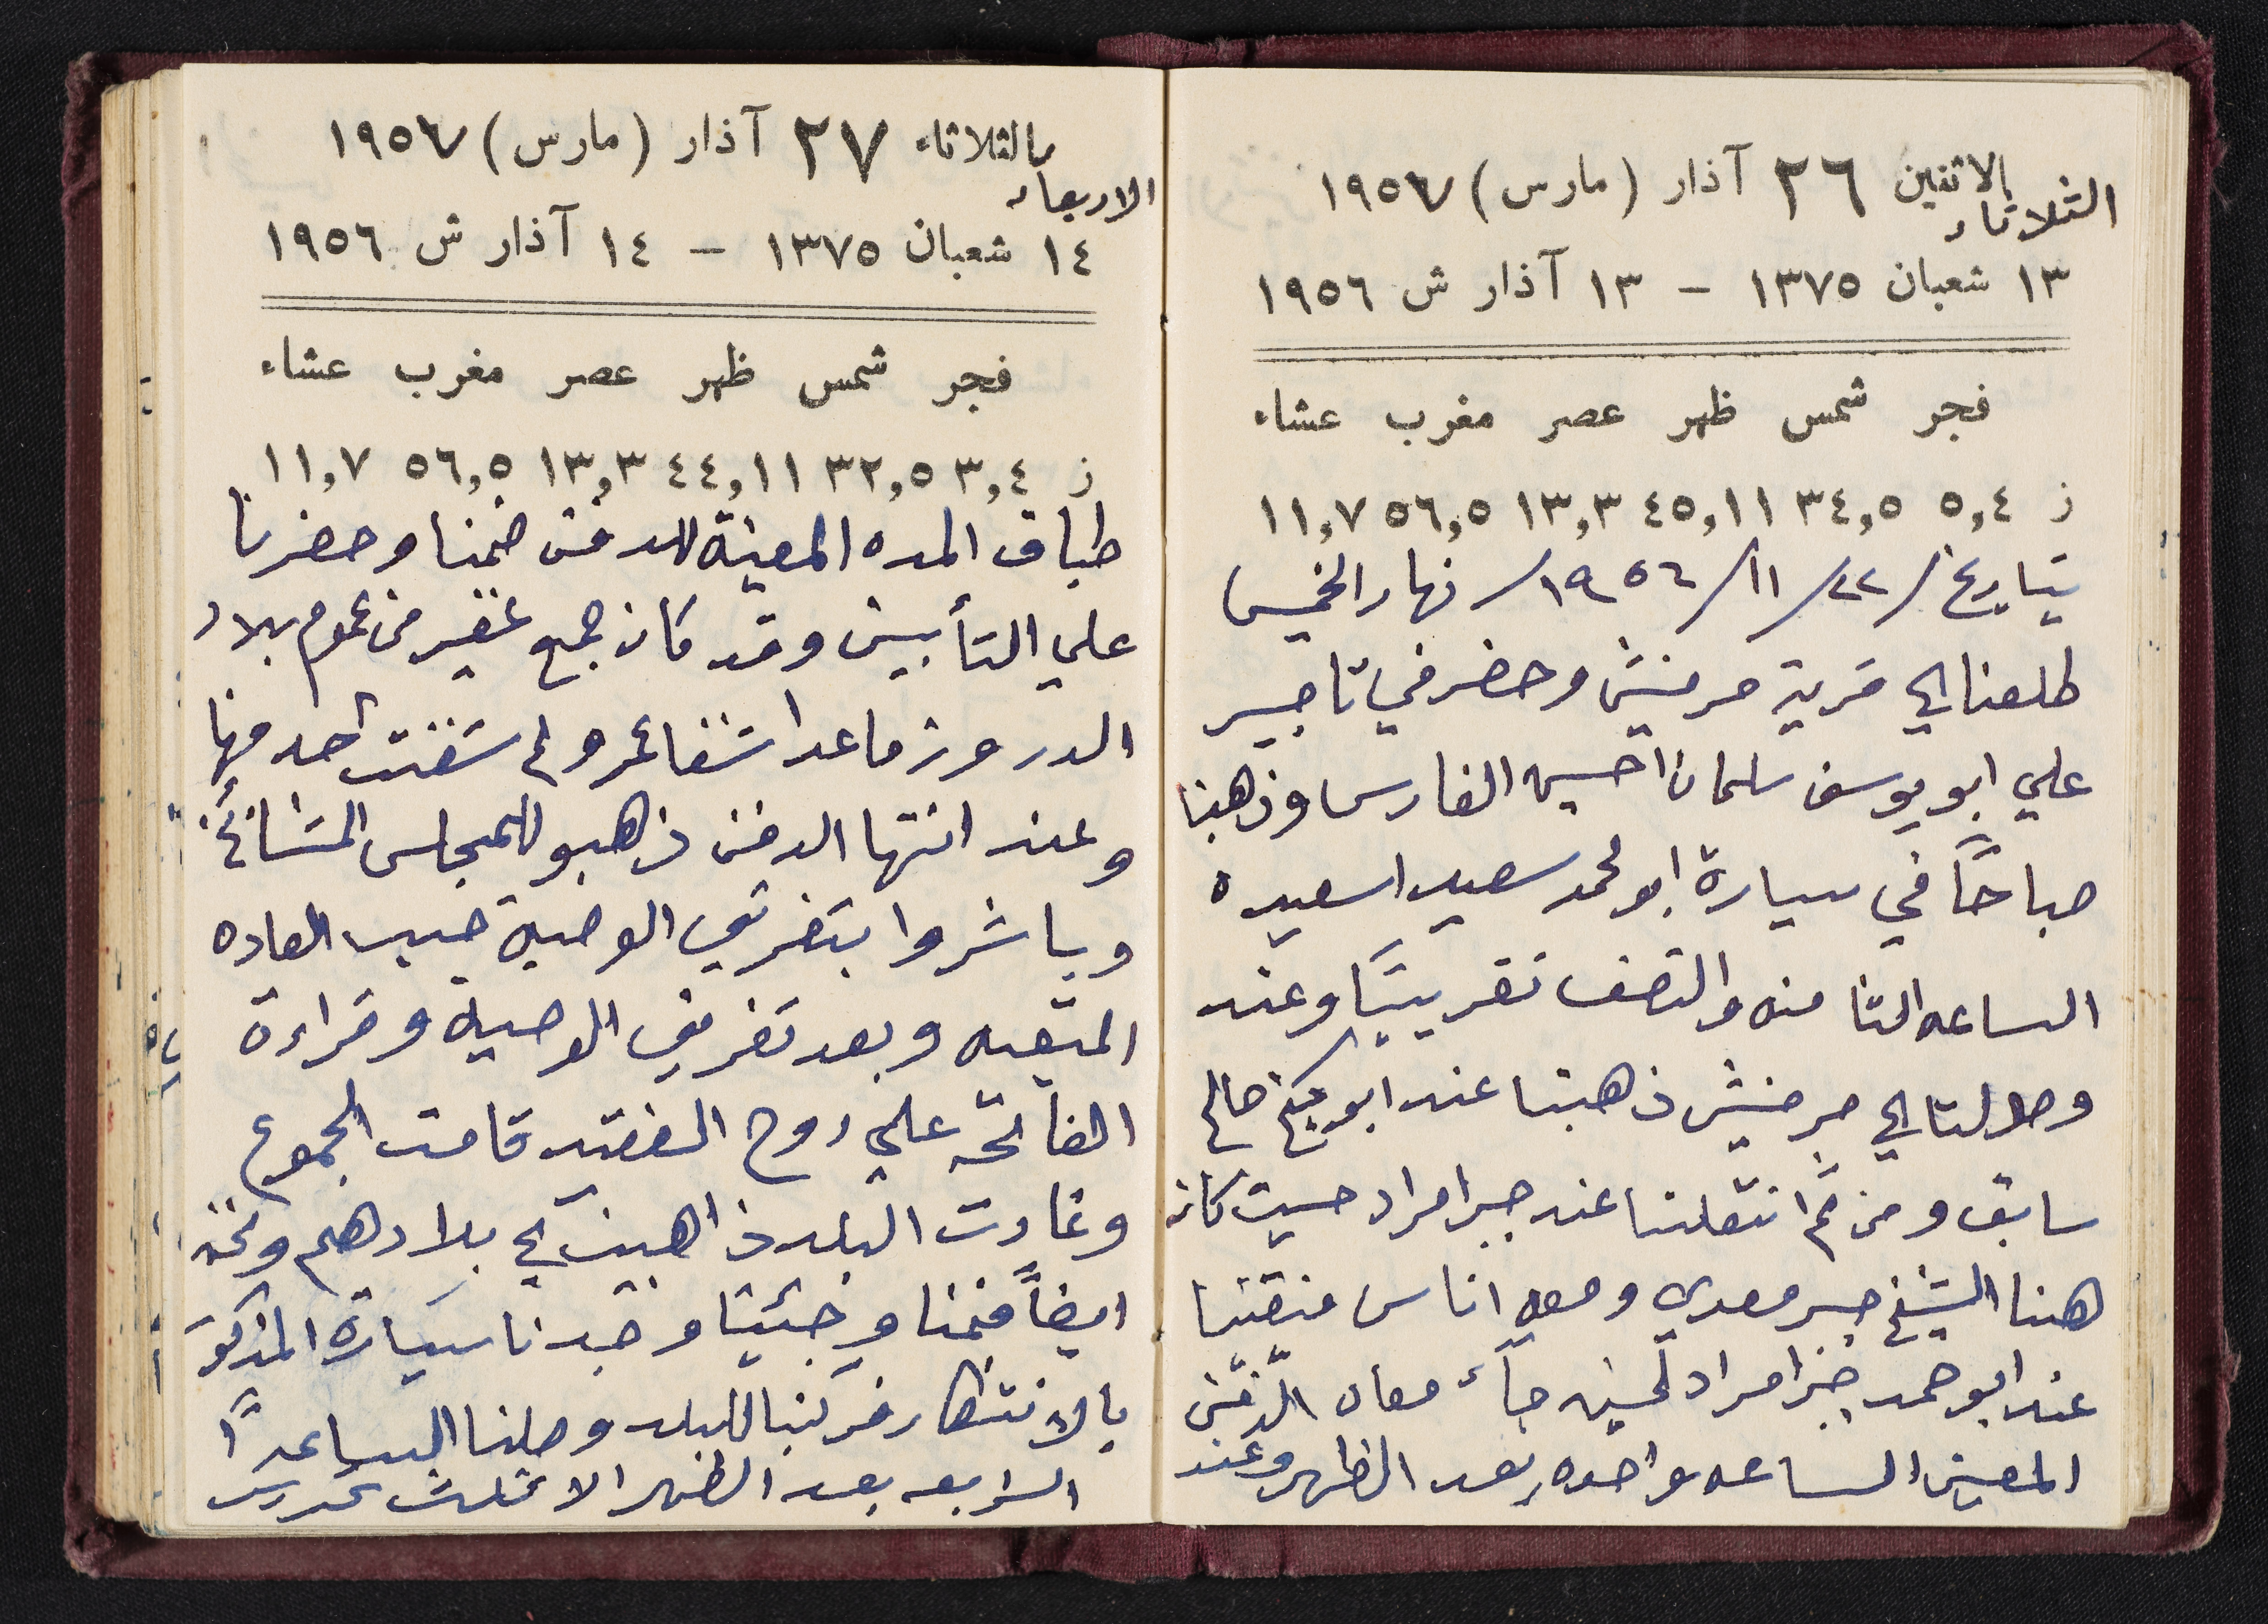 الاثنين ٢٦ آذار (مارس) ١٩٥٧
الثلاثاء
١٣ شعبان ١٣٧٥ – ١٣ آذار ش ١٩٥٦
فجر شمس ظهر عصر مغرب عشاء
ز ٥,٤ ٣٤,٥ ٤٥,١١ ١٣,٣ ٥٦,٥ ١١,٧
بتاريخ /٢٢/ ١١/ ١٩٥٦/ نهار الخميس
طلعنا الي قرية حرفيش وحضر في تاجير
علي ابو يوسف سلمان احسين الفارس وذهبنا
صباحاً في سيارة ابو محمد سعيد اسعيده
الساعه الثامنه والنصف تقريبًا وعند
وصولنا الي حرفيش ذهبنا عند ابو صالح
سابق ومن ثم انتقلنا عند جبر امراد حيث كان
هنا الشيخ جبر معدي ومعه اناس فبقينا
عند ابو حمد جبر امراد لحين جآء معاد الدّفن
المعين الساعه واحده بعد الظهر وعند
الثلاثاء ٢٧ آذار (مارس) ١٩٥٧
الاربعاء
١٤ شعبان ١٣٧٥ – ١٤ آذار ش ١٩٥٦
فجر شمس ظهر عصر مغرب عشاء
ز ٣,٤ ٣٢,٥ ٤٤,١١ ١٣,٣ ٥٦,٥ ١١,٧
طباق المده المعينة للدفن ضمنا وحضرنا
علي التأبين وقد كان جمع غفير من عموم بلاد
الدروز ماعدا شفاعمرو لم شفت أحد منها
وعند انتها الدفن ذهبو للمجلس المشائخ
وباشروا بتفريق الوصية حسب العاده
المتبعه وبعد تفريق الوصيه وقراءة
الفاتحه علي روح الفقيد قامت الجموع
وغادرت البلد ذاهبين الي بلادهم ونحن
ايضاً قمنا وجئينا وجدنا سيارة المذكور
بالانتظار فركبنا للبلد وصلنا الساعه
الرابعه بعد الظهر الا ثلث